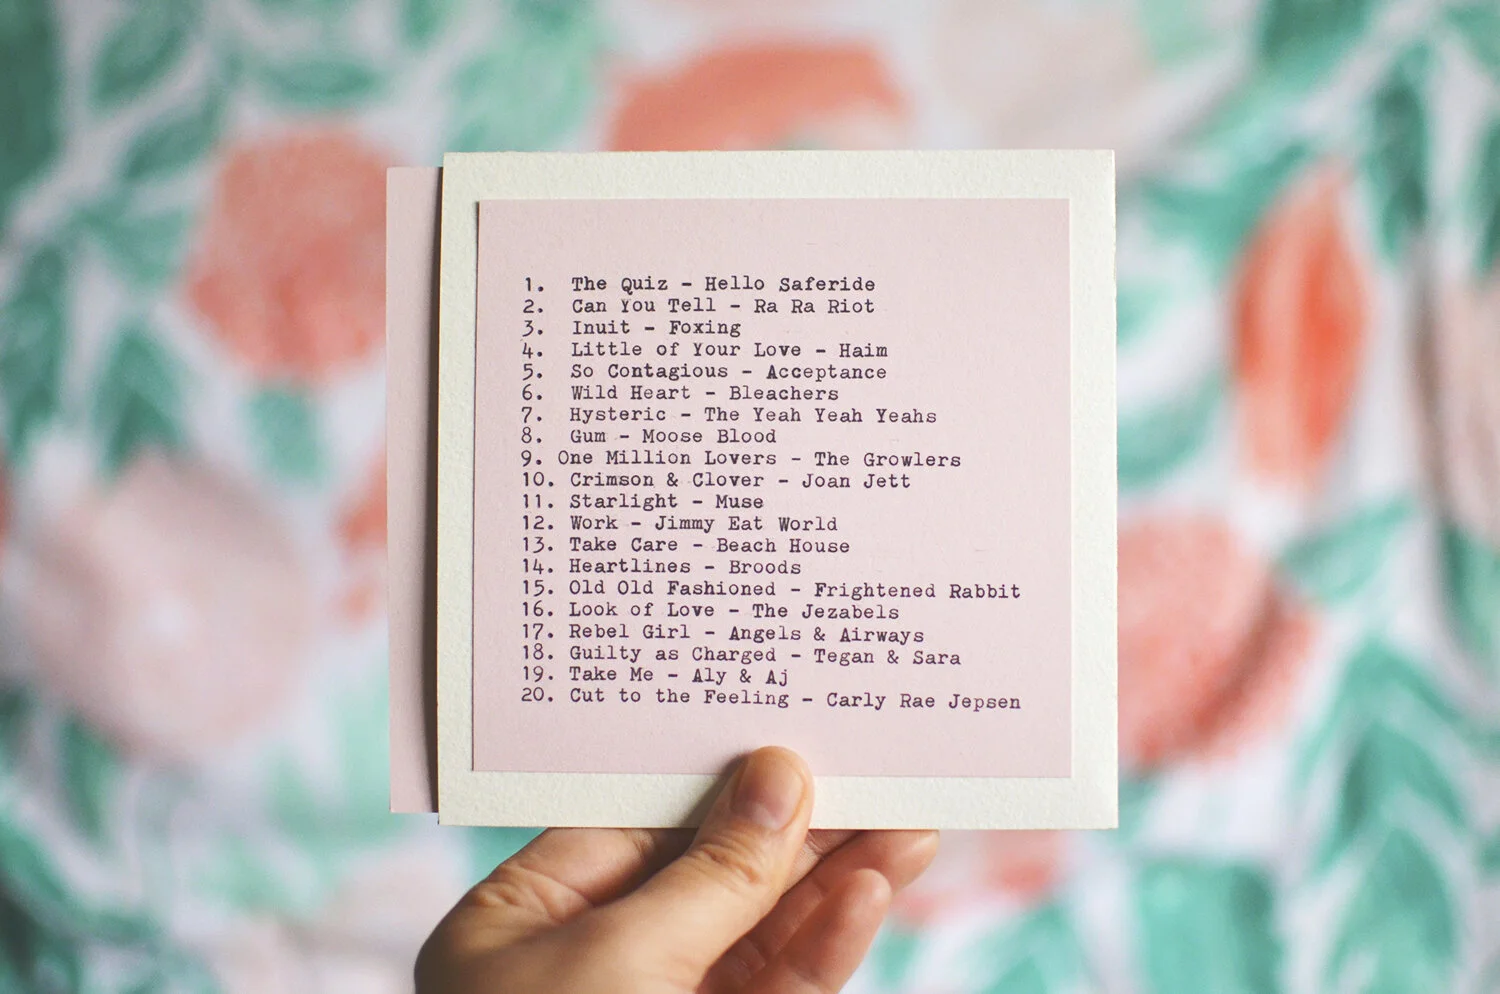 1. The Quiz - Hello Saferide
2. Can You Tell - Ra Ra Riot
3. Inuit - Foxing
4. Little of Your Love - Haim
5. So Contagious - Acceptance
6. Wild Heart - Bleachers
7. Hysteric - The Yeah Yeah Yeahs
8. Gum - Moose Blood
9. One Million Lovers - The Growlers
10. Crimson & Clover - Joan Jett
11. Starlight - Muse
12. Work - Jimmy Eat World
13. Take Care - Beach House
14. Heartlines - Broods
15. Old Old Fashioned - Frightened Rabbit
16. Look of Love - The Jezabels
17. Rebel Girl - Angels & Airways
18. Guilty as Charged - Tegan & Sara
19. Take Me - Aly & Aj
20. Cut to the Feeling - Carly Rae Jepsen